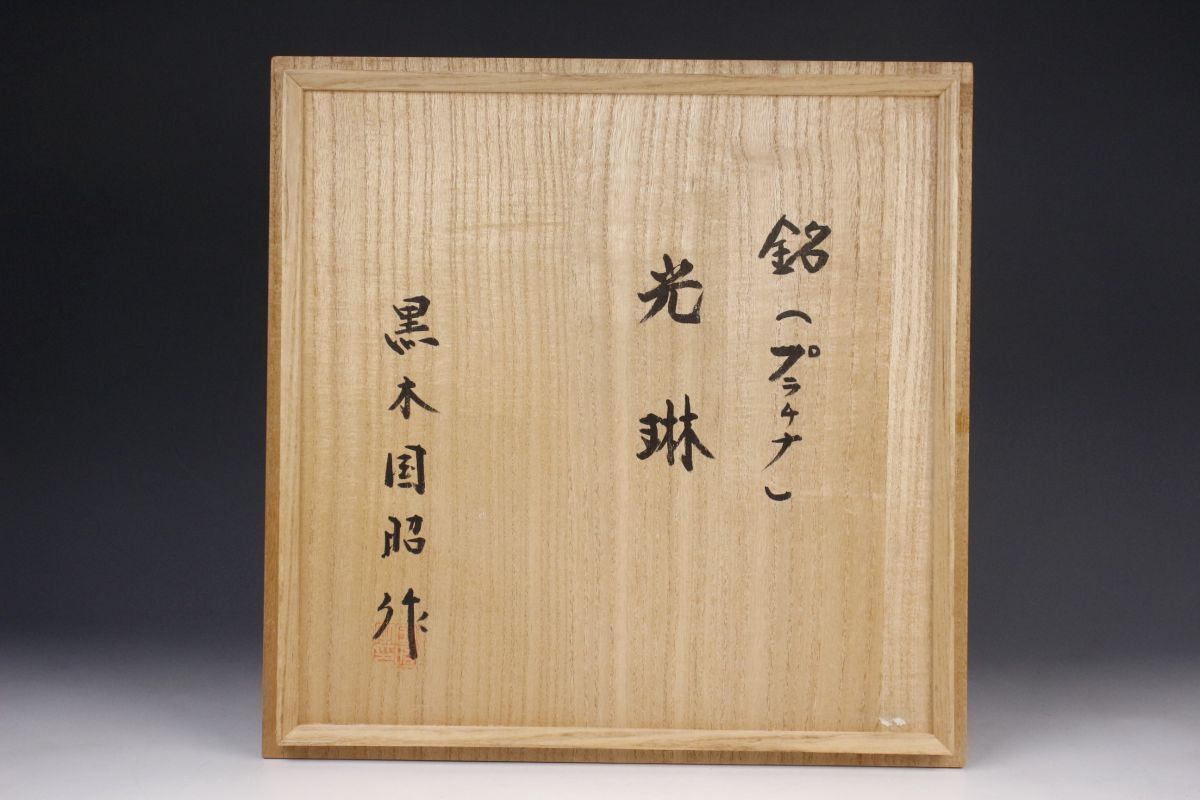 銘(プラチナ)
光琳
黒木国昭作